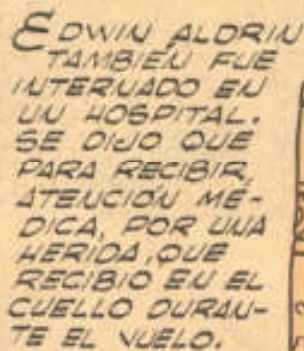 EDWIN ALDRIN
TAMBIÉN FUE
INTERNADO EN
UN HOSPITAL.
SE DIJO QUE
PARA RECIBIR,
ATENCIÓN MÉ-
DICA, POR UNA
HERIDA, QUE
RECIBIO EN EL
CUELLO DURAN-
TE EL VUELO.